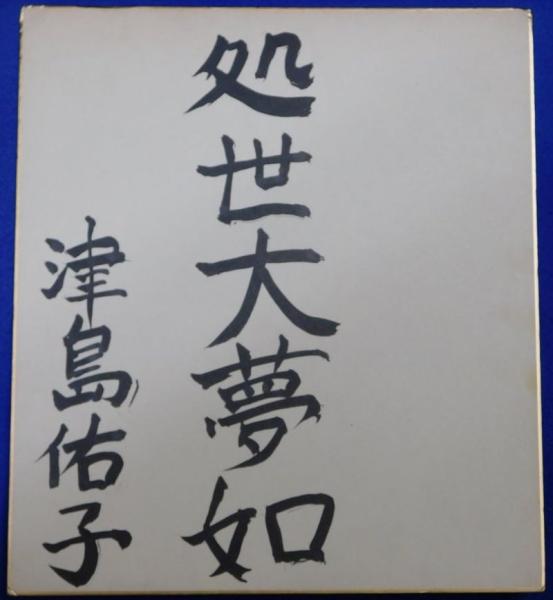 処世大夢如
津島佑子